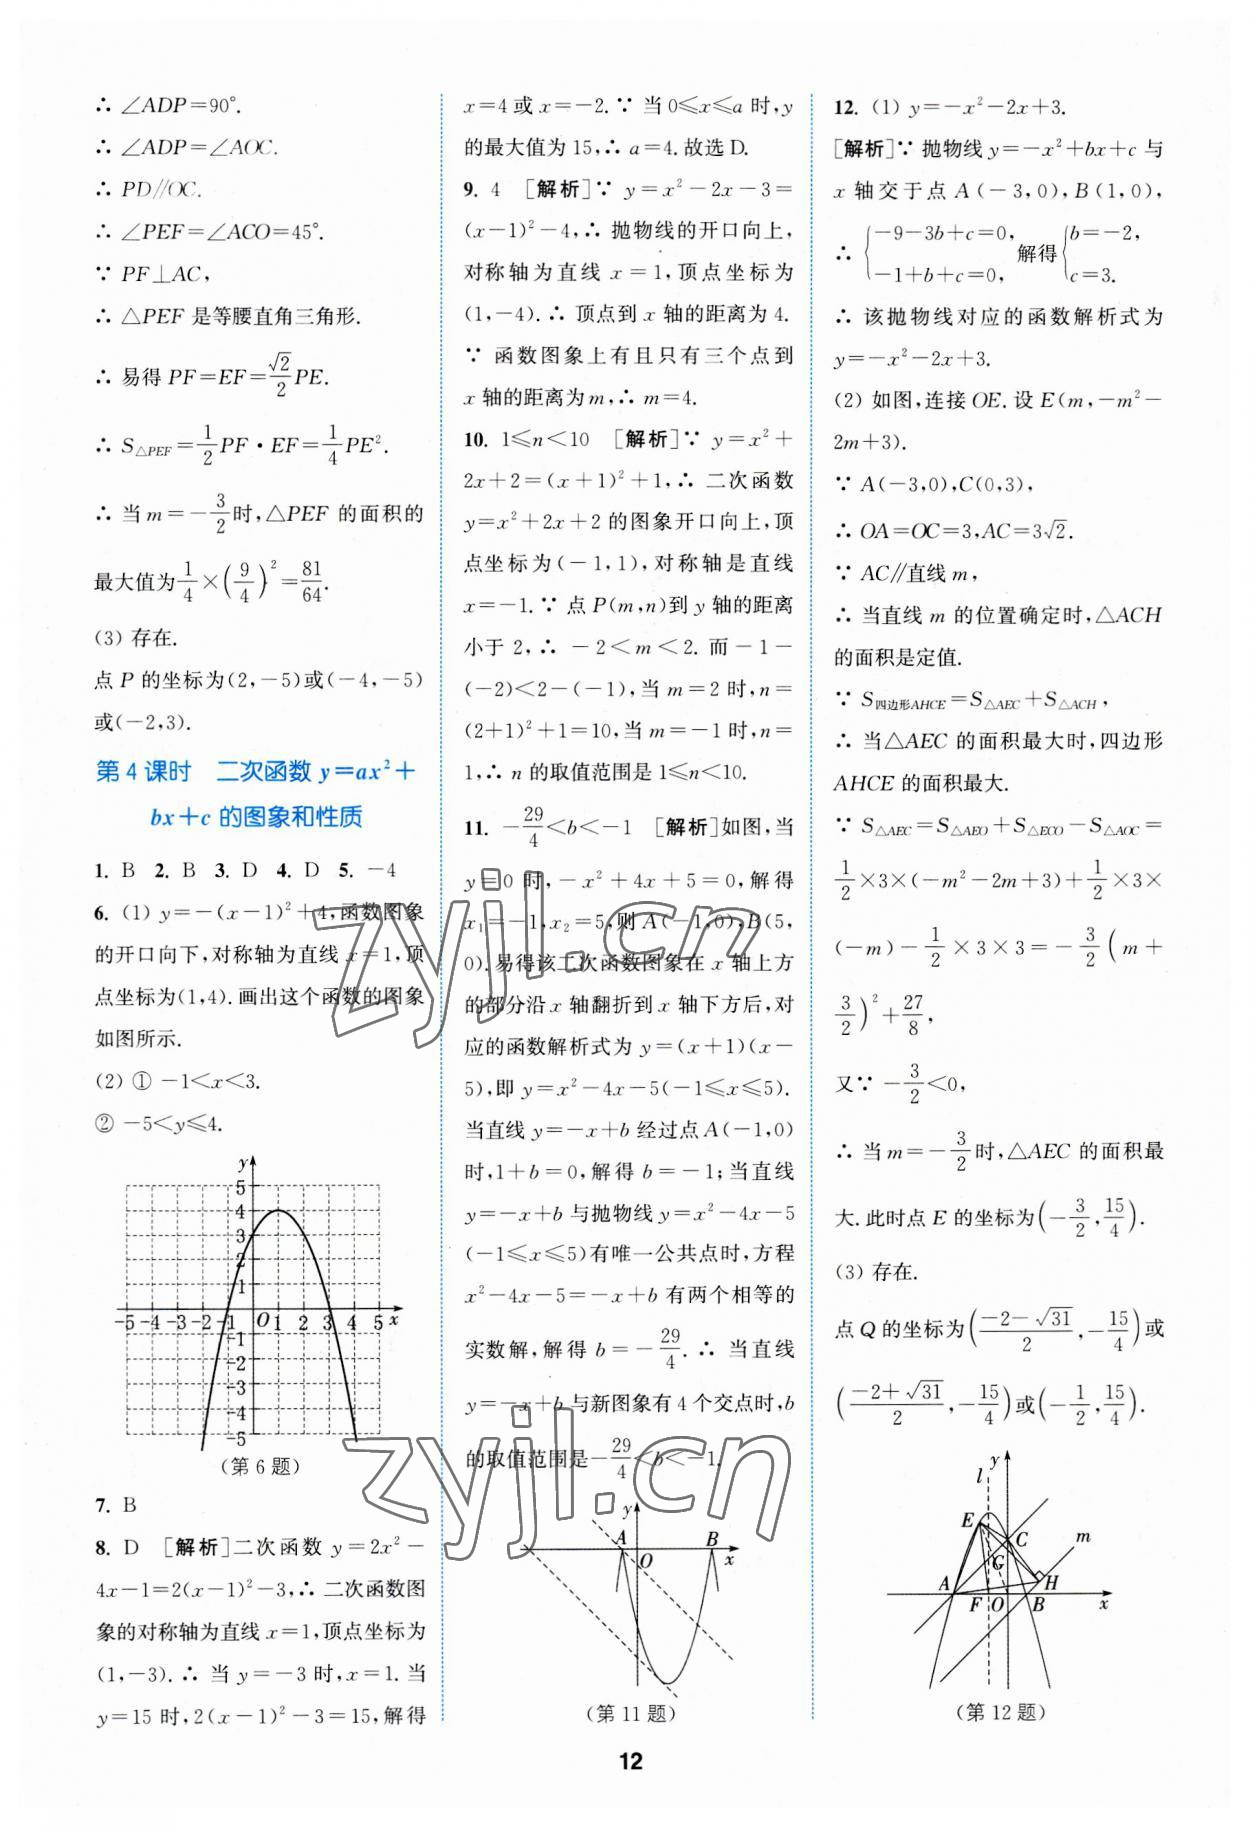 ∴ ∠ADP=90°.
∴ ∠ADP=∠AOC.
∴ PD∥OC.
∴ ∠PEF=∠ACO=45°.
∵ PF⊥AC,
∴ △PEF 是等腰直角三角形.
∴ 易得 PF=EF=√2/2 PE.
∴ S△PEF=1/2 PF·EF=1/4 PE².
∴ 当 m=-3/2 时,△PEF 的面积的
最大值为 1/4×(9/4)²=81/64.
(3) 存在.
点 P 的坐标为(2,-5)或(-4,-5)
或(-2,3).
第 4 课时 二次函数 y=ax²+
bx+c 的图象和性质
1. B 2. B 3. D 4. D 5. -4
6. (1) y=-(x-1)²+4,函数图象
的开口向下,对称轴为直线 x=1,顶
点坐标为(1,4).画出这个函数的图象
如图所示.
(2) ① -1<x<3.
② -5<y≤4.
y
5
4
3
2
1
-5 -4 -3 -2 -1 O 1 2 3 4 5 x
-1
-2
-3
-4
-5
(第 6 题)
7. B
8. D [解析]二次函数 y=2x²-
4x-1=2(x-1)²-3,∴ 二次函数图
象的对称轴为直线 x=1,顶点坐标为
(1,-3).∴ 当 y=-3 时,x=1.当
y=15 时,2(x-1)²-3=15,解得
x=4 或 x=-2.∵ 当 0≤x≤a 时,y
的最大值为 15,∴ a=4.故选 D.
9. 4 [解析]∵ y=x²-2x-3=
(x-1)²-4,∴ 抛物线的开口向上,
对称轴为直线 x=1,顶点坐标为
(1,-4).∴ 顶点到 x 轴的距离为 4.
∵ 函数图象上有且只有三个点到
x 轴的距离为 m,∴ m=4.
10. 1≤n<10 [解析]∵ y=x²+
2x+2=(x+1)²+1,∴ 二次函数
y=x²+2x+2 的图象开口向上,顶
点坐标为(-1,1),对称轴是直线
x=-1.∵ 点 P(m,n)到 y 轴的距离
小于 2,∴ -2<m<2.而 -1-
(-2)<2-(-1),当 m=2 时,n=
(2+1)²+1=10,当 m=-1 时,n=
1,∴ n 的取值范围是 1≤n<10.
11. -29/4<b<-1 [解析]如图,当
y=0 时,-x²+4x+5=0,解得
x₁=-1,x₂=5,则 A(-1,0),B(5,
0).易得该二次函数图象在 x 轴上方
的部分沿 x 轴翻折到 x 轴下方后,对
应的函数解析式为 y=(x+1)(x-
5),即 y=x²-4x-5(-1≤x≤5).
当直线 y=-x+b 经过点 A(-1,0)
时,1+b=0,解得 b=-1;当直线
y=-x+b 与抛物线 y=x²-4x-5
(-1≤x≤5)有唯一公共点时,方程
x²-4x-5=-x+b 有两个相等的
实数解,解得 b=-29/4.∴ 当直线
y=-x+b 与新图象有 4 个交点时,b
的取值范围是-29/4<b<-1.
y
A B
O x
(第 11 题)
12. (1) y=-x²-2x+3.
[解析]∵ 抛物线 y=-x²+bx+c 与
x 轴交于点 A(-3,0),B(1,0),
∴ {-9-3b+c=0, -1+b+c=0, 解得 {b=-2, c=3.
∴ 该抛物线对应的函数解析式为
y=-x²-2x+3.
(2) 如图,连接 OE.设 E(m,-m²-
2m+3).
∵ A(-3,0),C(0,3),
∴ OA=OC=3,AC=3√2.
∵ AC∥直线 m,
∴ 当直线 m 的位置确定时,△ACH
的面积是定值.
∵ S四边形AHCE=S△AEC+S△ACH,
∴ 当△AEC 的面积最大时,四边形
AHCE 的面积最大.
∵ S△AEC=S△AEO+S△ECO-S△AOC=
1/2×3×(-m²-2m+3)+1/2×3×
(-m)-1/2×3×3=-3/2(m+
3/2)²+27/8,
又∵ -3/2<0,
∴ 当 m=-3/2 时,△AEC 的面积最
大.此时点 E 的坐标为(-3/2,15/4).
(3) 存在.
点 Q 的坐标为((-2-√31)/2,-15/4)或
((-2+√31)/2,-15/4)或(-1/2,15/4).
l y
E C m
G
A H
F O B x
(第 12 题)
zyjl.cn
zyjl.cn
12